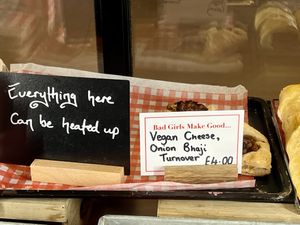 Everything here
Can be heated up
Bad Girls Make Good...
Vegan Cheese,
Onion Bhaji
Turnover £4.00